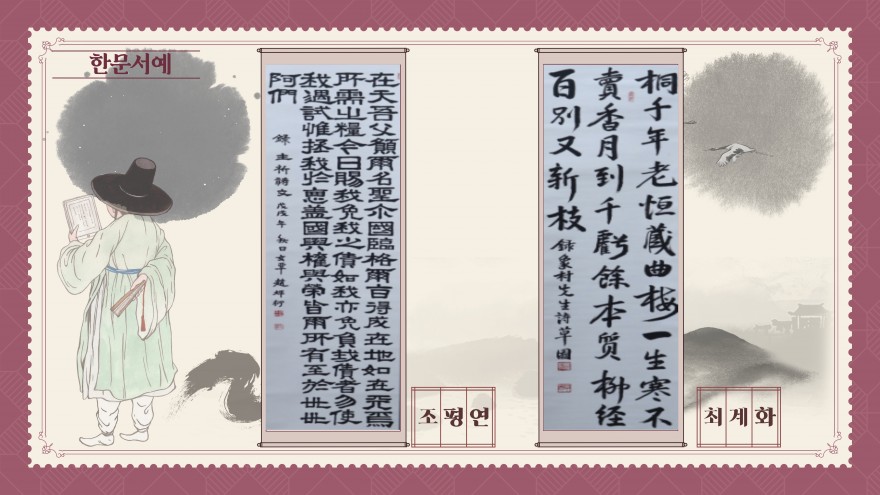 한문서예
在天吾父願爾名聖尒國臨格爾旨得成在地如在天焉
所需之糧今日賜我免我之債如我亦免負我債者勿使
我遇試惟拯我於惡盖國與權與榮皆爾所有至於世世
阿們
錄主祈禱文 戊戌年
조평연
桐千年老恒藏曲梅一生寒不
賣香月到千虧餘本質柳经
百别又新枝
錄象村先生詩草園
최계화